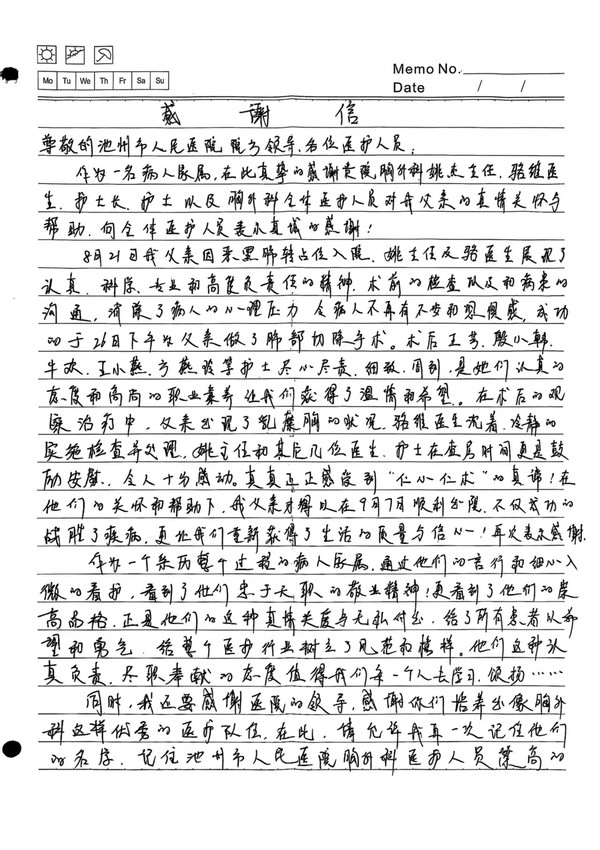 Memo No.
Mo Tu We Th Fr Sa Su
Date / /
感谢信
尊敬的池州市人民医院院方领导、各位医护人员:
作为一名病人家属,在此真挚的感谢贵院胸外科姚杰主任、骆维医
生、护士长、护士以及胸外科全体医护人员对我父亲的真情关怀与
帮助,向全体医护人员表示真诚的感谢!
8月21日我父亲因来肺转占位入院,姚主任及骆医生展现了
认真、科际、专业和高度负责任的精神,术前的检查以及和病患的
沟通,消除了病人的心理压力,令病人不再有不安和恐惧感,成功
的于26日下午为父亲做了肺部切除手术。术后王芳、殷小韩、
牛欢、王小燕、方燕等护士尽心尽责、细致、周到,是她们认真的
态度和高尚的职业素养让我们获得了温情和希望。在术后的观
察治疗中,父亲出现了乳糜胸的状况,骆维医生沉着、冷静的
实施检查并处理,姚主任和其它几位医生、护士在查房时间更是鼓
励安慰,令人十分感动。真真正正感受到“仁心仁术”的真谛!在
他们的关怀和帮助下,我父亲才得以在9月7日顺利出院,不仅成功的
战胜了疾病,更让我们重新获得了生活的质量与信心!再次表示感谢.
作为一个亲历整个过程的病人家属,通过他们的言行和细心入
微的看护,看到了他们忠于天职的敬业精神!更看到了他们的崇
高品格,正是他们的这种真情关度与无私付出,给了所有患者以希
望和勇气,给整个医护行业树立了风范和榜样。他们这种认
真负责、尽职奉献的态度值得我们每一个人去学习、颂扬……
同时,我还要感谢医院的领导,感谢你们培养出像胸外
科这样优秀的医护队伍,在此,请允许我再一次记住他们
的名字,记住池州市人民医院胸外科医护人员崇高的